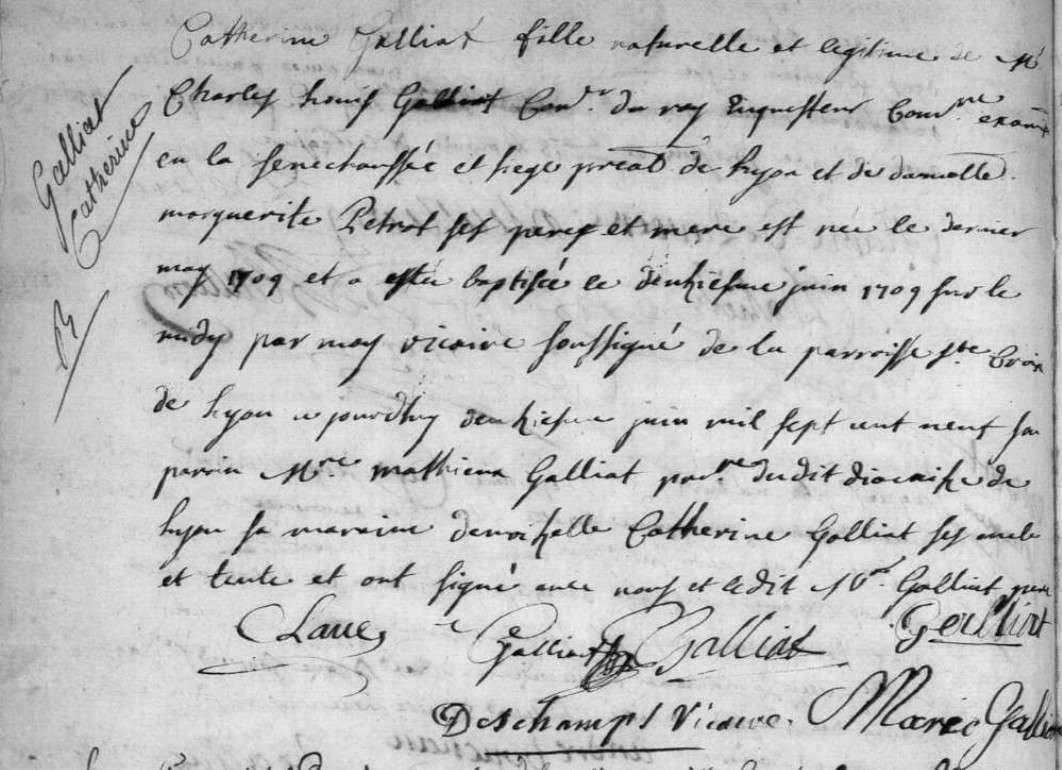 Galliat
Catherine
Catherine Galliat fille naturelle et legitime de Mr
Charles Louis Galliat Conr. du roy Enquesteur Comre examr
en la senechaussée et siege preal de Lyon et de damelle
marguerite Petrot ses peres et mere est née le dernier
may 1709 et a esté baptisée le deuxiesme juin 1709 sur le
midy par moy vicaire soussigné de la parroisse ste Croix
de Lyon ce jourdhuy deuxiesme juin mil sept cent neuf son
parrin Mre mathieu Galliat dudit diocaise de
Lyon sa maraine demoiselle Catherine Galliat ses oncle
et tente et ont signé avec nous et ledit Galliat pere
Galliat Galliat Galliat
Deschamps Vicaire. Marie Galliat